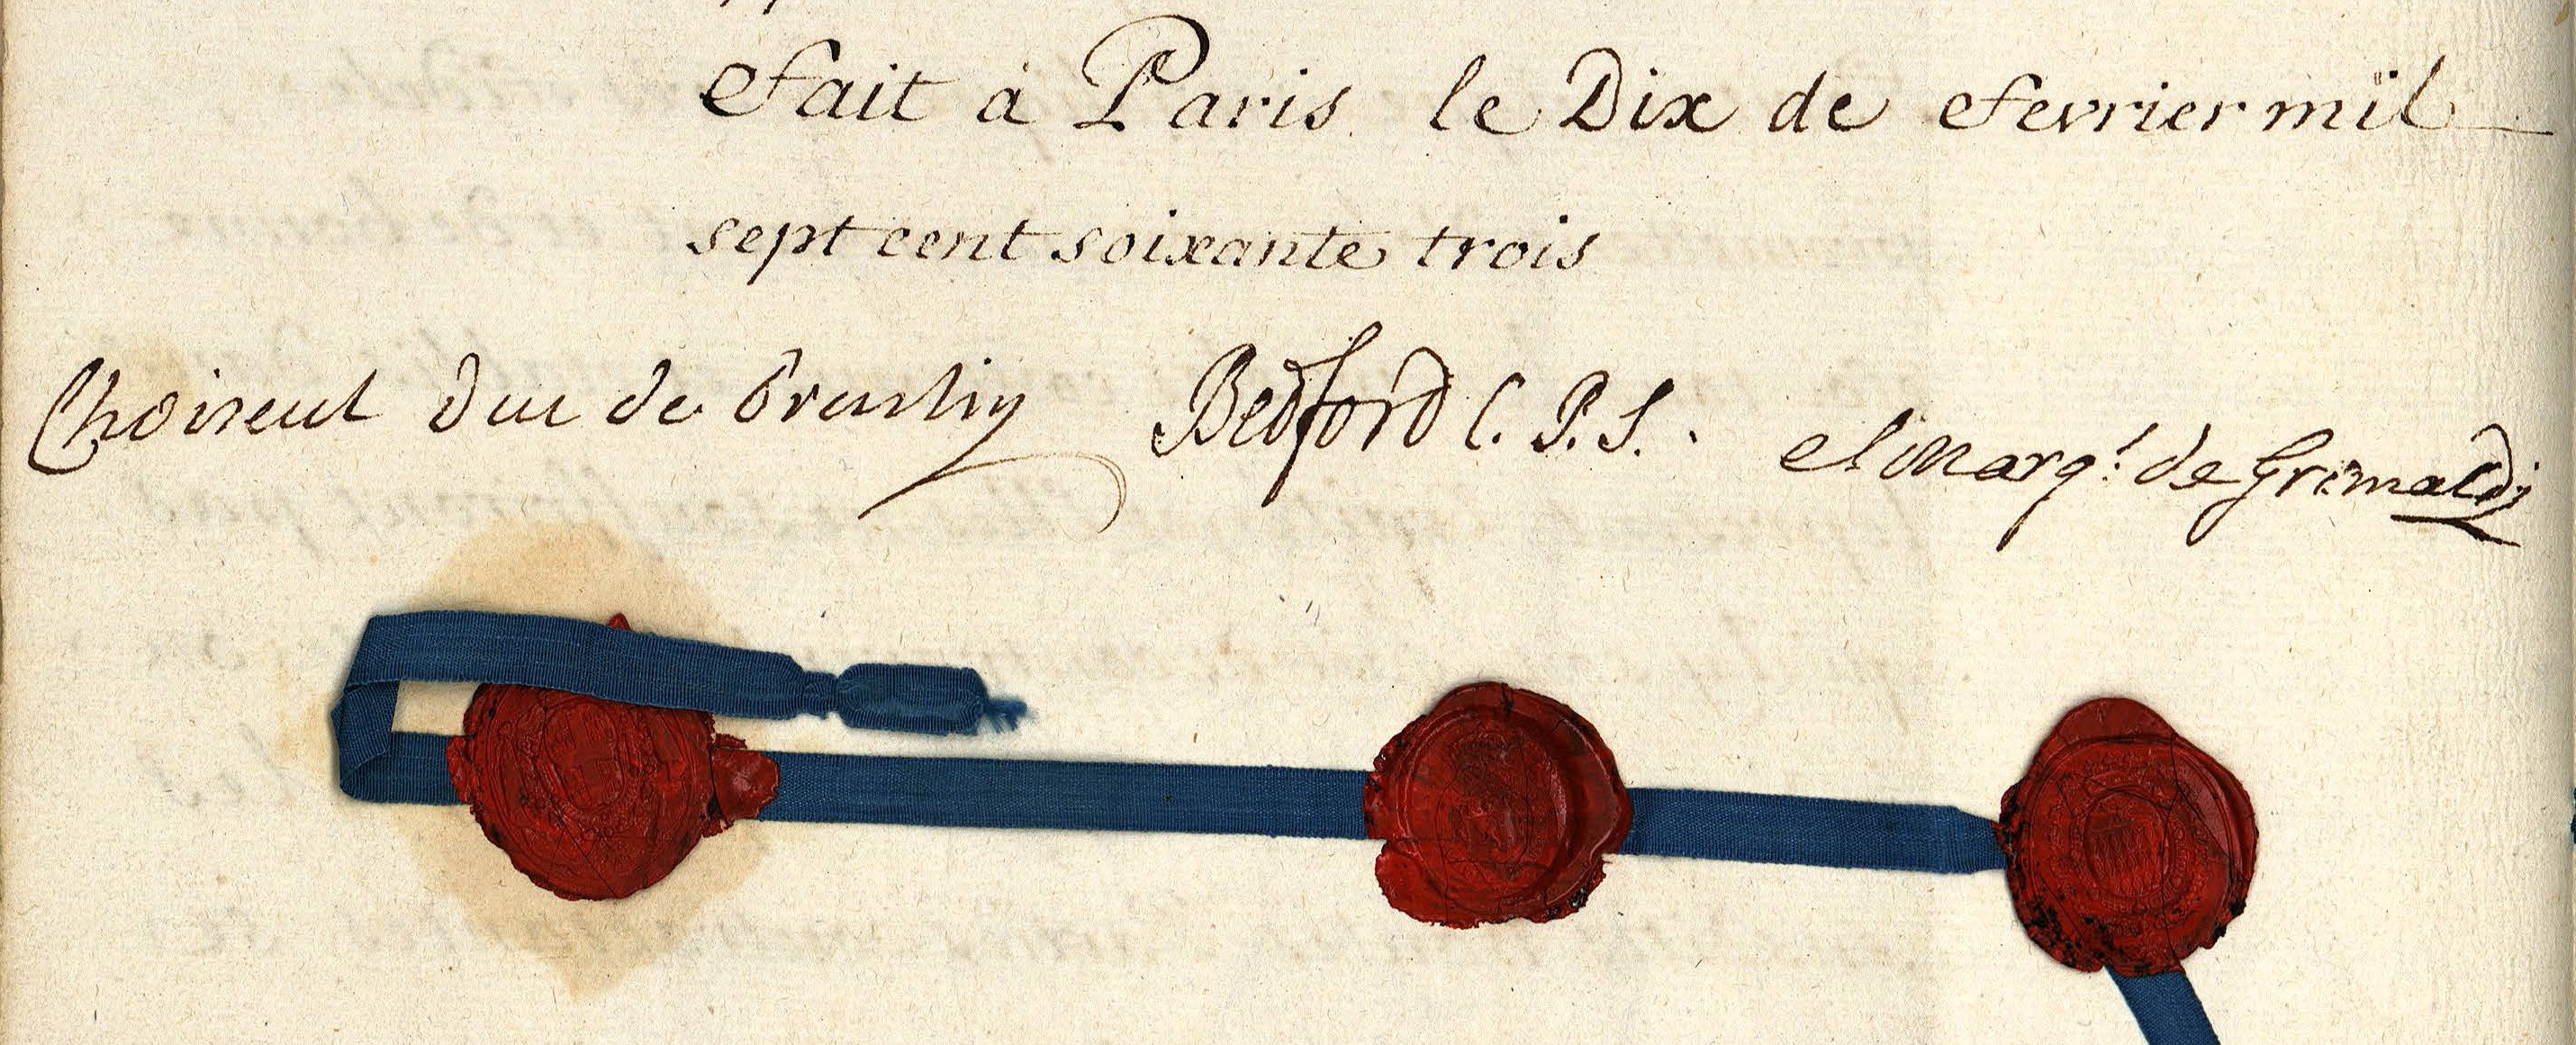 Fait à Paris le Dix de Fevrier mil
sept cent soixante trois
Choiseul Duc de Praslin Bedford C. P. S. el Marq.^s de Grimaldi